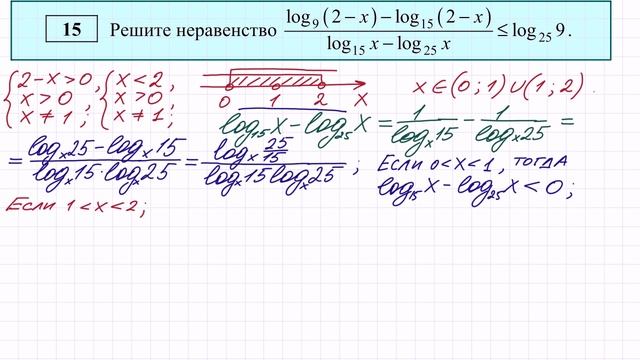 15 Решите неравенство (log₉(2−x)−log₁₅(2−x))/(log₁₅x−log₂₅x) ≤ log₂₅9.
{2−x>0, {x<2, 0 1 2 x x∈(0;1)∪(1;2).
{x>0, {x>0,
{x≠1; {x≠1;
log₁₅x−log₂₅x = 1/(logₓ15) − 1/(logₓ25) =
= (logₓ25−logₓ15)/(logₓ15·logₓ25) = (logₓ 25/15)/(logₓ15 logₓ25); Если 0<x<1, тогда
log₁₅x−log₂₅x<0;
Если 1<x<2;